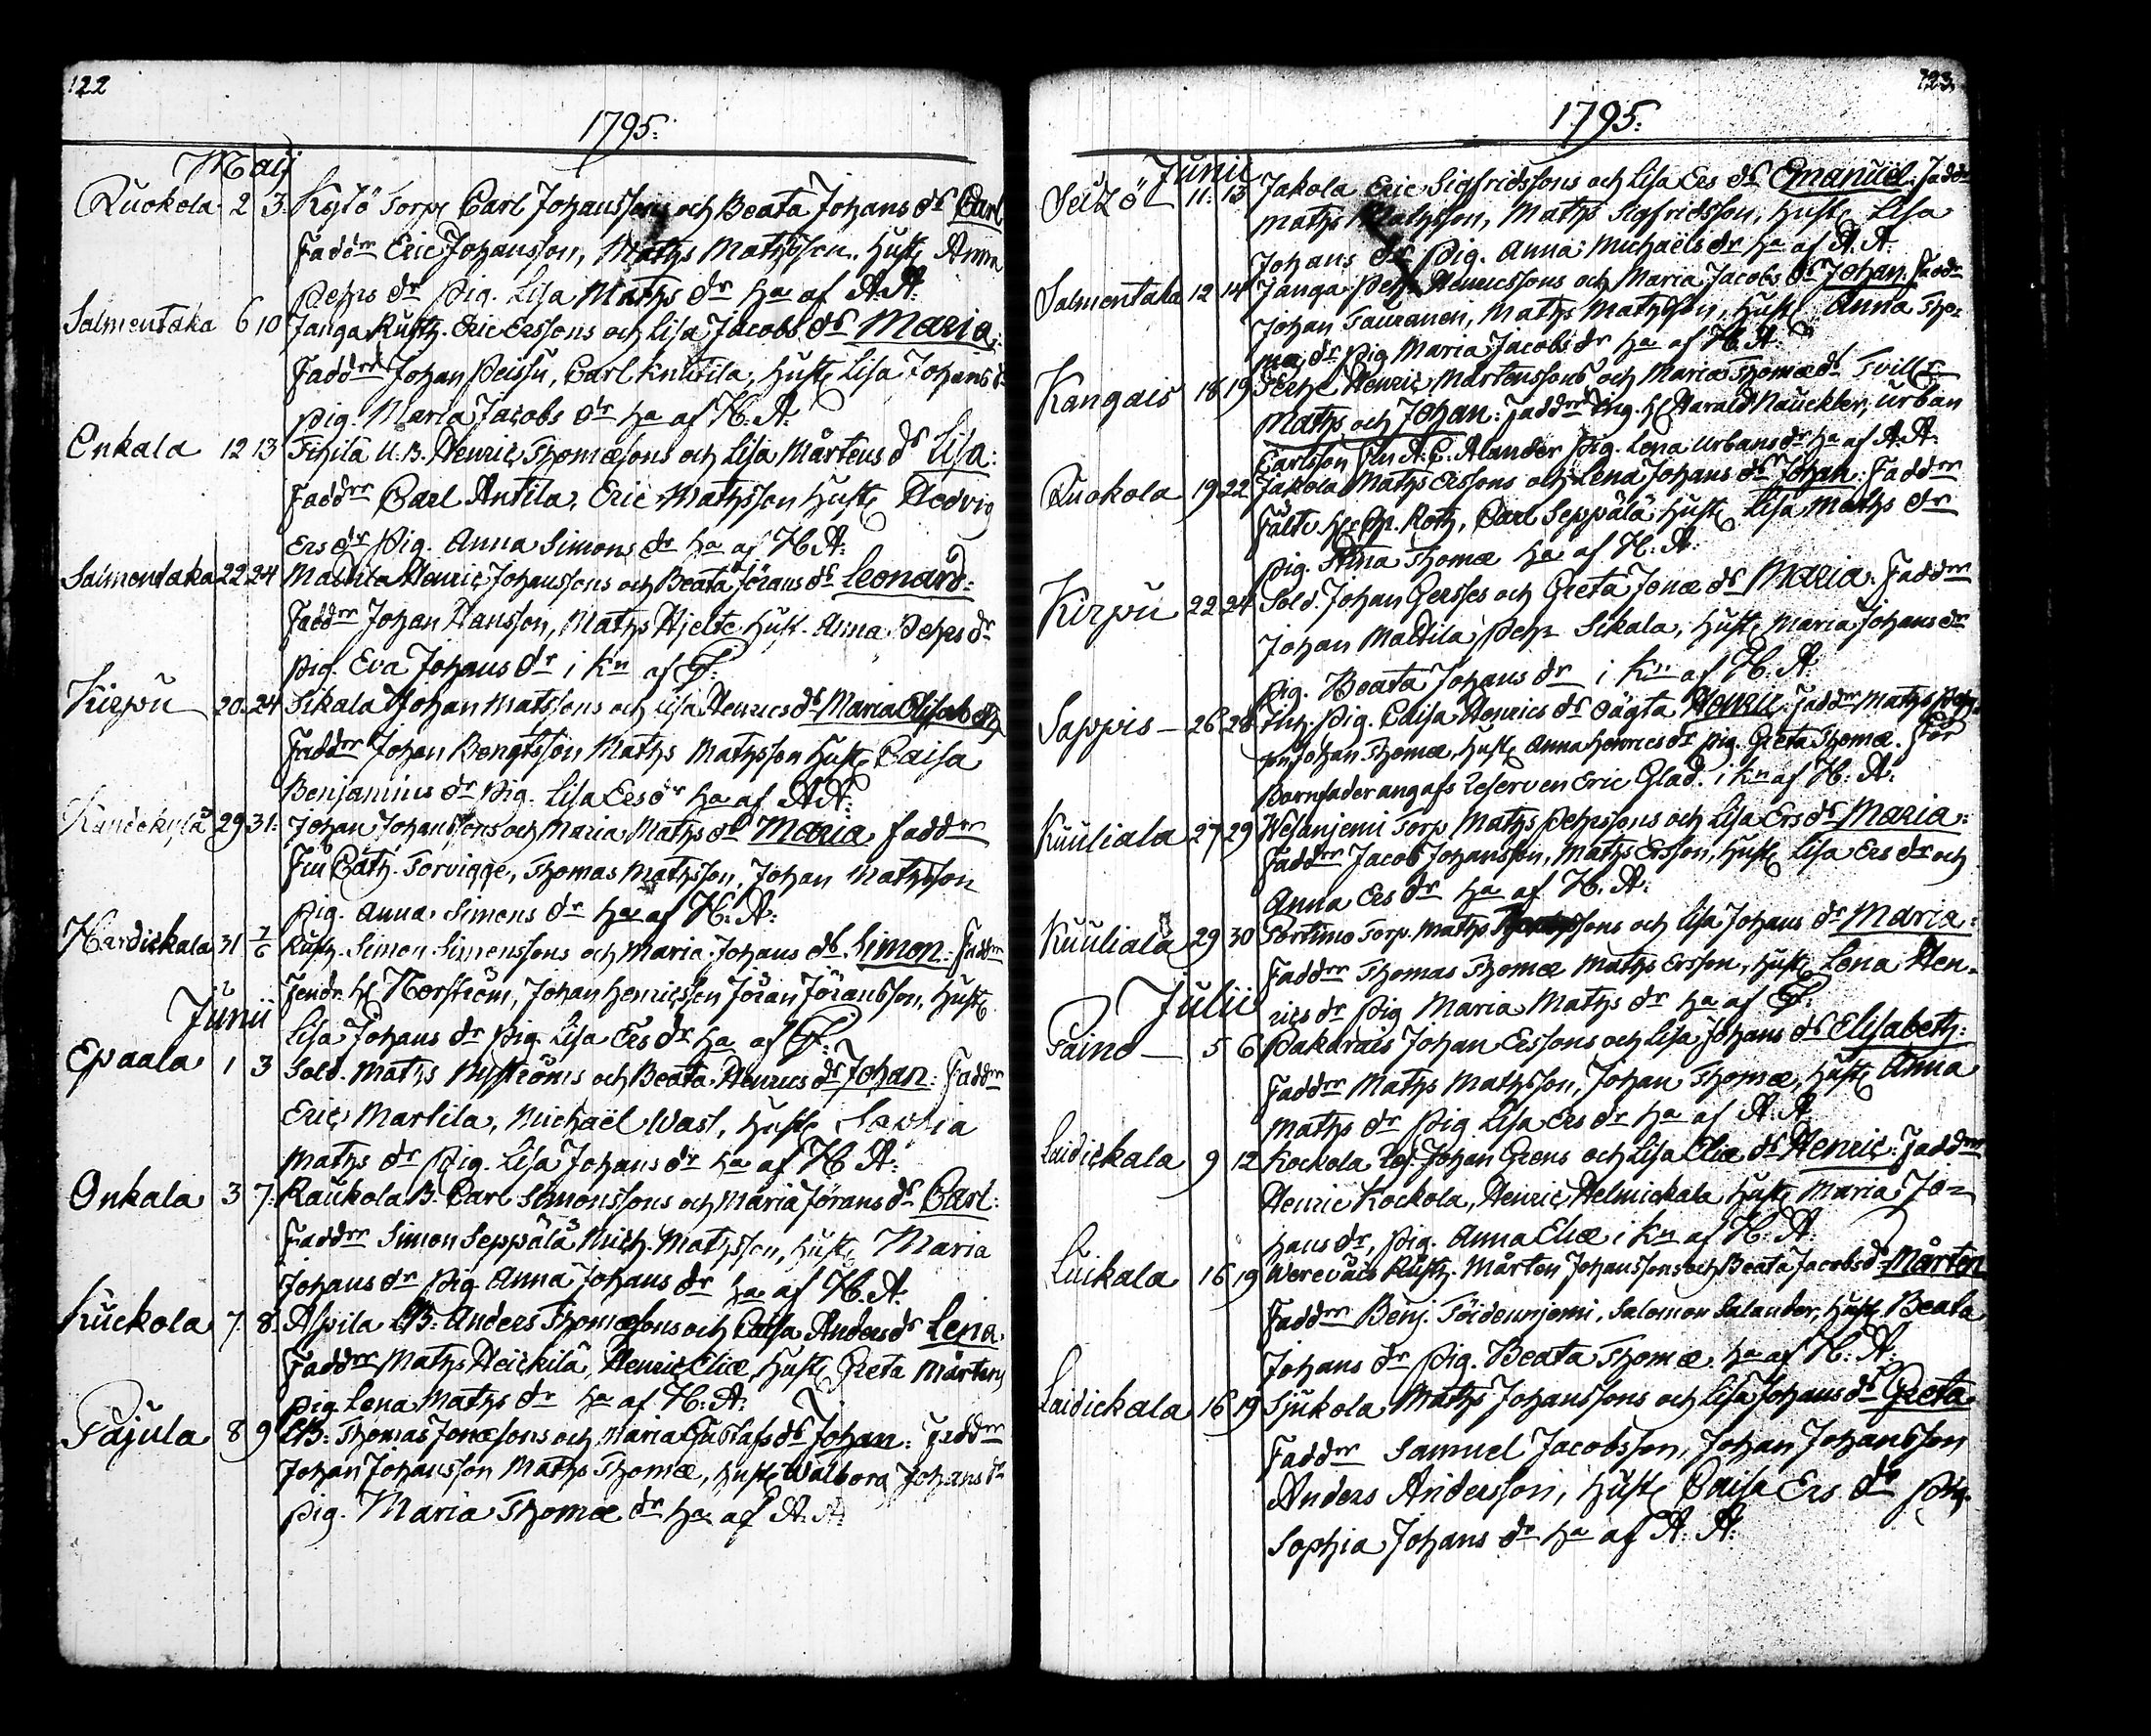 122
1795:
Maij
Ruokola 2 3. Kylö Torp. Carl Johanssons och Beata Johans dr Carl
Faddrr Eric Johansson, Maths Mathsson. Hust. Anna
Pehrs dr Pig. Lisa Maths dr ha af A. A:
Salmentaka 6 10 Janga Rusth. Eric Erssons och Lisa Jacobs dr Maria:
Faddrr Johan Peissu, Carl Knutila, Hust. Lisa Johans d
pig. Maria Jacobs dr ha af H. A:
Onkala 12 13 U. B. Henric Thomæsons och Lisa Mårtens dr Lisa:
Faddrr Carl Antila, Eric Mathsson Hust. Hedvig
Ers dr Pig. Anna Simons dr ha af H. A:
Salmentaka 22 24 Mattila Henric Johanssons och Beata Jörans dr Leonard:
Faddrr Johan Hansson, Maths Hjelte. Hust. Anna Pehrs dr
pig. Eva Johans dr i Kn af
Kirpu 20. 24 Sikala Johan Matssons och Lisa Henrics dr Maria Elisabeth
Faddrr Johan Bengtsson Maths Mathsson Hust. Caisa
Benjamins dr Pig. Lisa Ers dr ha af A. A:
29 31: Johan Johanssons och Maria Maths dr Maria faddrr
Fru Cath. Torvigge, Thomas Mathsson, Johan Mathsson
pig. Anna Simons dr ha af H. A:
Hardickala 31 1/6 Rusth. Simon Simonssons och Maria Johans dr. Simon. Faddrr
Fendr. H. Norström, Johan Henricsson Jöran Jöransson, Hust.
Junii
Lisa Johans dr Pig. Lisa Ers dr ha af
Epaala 1 3 Sold. Maths Nyströms och Beata Henrics dr Johan: Faddrr
Eric Martila, Michaël Wast, Hust.
Maths dr Pig. Lisa Johans dr ha af H A:
Onkala 3 7: Raukola B. Carl Simonssons och Maria Jörans dr Carl:
Faddrr Simon Seppälä Mich. Mathsson, Hust. Maria
Johans dr Pig Anna Johans dr ha af H. A:
Kuckola 7. 8. Alpila Anders Thomæsons och Caisa Anders dr Lena
Faddrr Maths Heickilä, Henric Eliæ, Hust. Greta Mårtens
pig Lena Maths dr ha af H: A:
Pajula 8 9 Thomas Jonæsons och Maria Gustafs dr Johan: Faddrr
Johan Johansson Maths Thomæ, Hust. Walborg Johans dr
pig. Maria Thomæ dr ha af A: A:
123
1795:
Junii
11. 13 Jakola Eric Sigfridssons och Lisa Ers dr Emanuel. Faddrr
Maths Mathsson, Maths Sigfridsson, Hust. Lisa
Johans dr Pig. Anna Michaëls dr ha af A. A:
Salmentaka 12 14 Janga Pehr Henricssons och Maria Jacobs dr Johan Faddr
Johan Tauranen, Maths Mathsson, Hust. Anna Tho-
mæ dr pig Maria Jacobs dr ha af H. A:
Kangais 18 19 Henric Mårtenssons och Maria Thomæ dr Tvill.
Maths och Johan: Faddrr Harald Nauckler, Urban
Carlsson A. C. Alander Pig. Lena Urbans dr ha af A: A:
Ruokola 19. 22 Jakola Maths Erssons och Lena Johans dr Johan. Faddrr
Roth, Carl Seppälä Hust. Lisa Maths dr
pig. Thomæ ha af H. A:
Kirpu 22 24 Sold. Johan Gersses och Greta Jonæ dr Maria. Faddrr
Johan Mattila Pehr Sikala, Hust. Maria Johans dr
pig. Beata Johans dr i Kn af H. A:
Sappis 26 28 Pig. Caisa Henrics dr oägta Henric. Faddrr Maths Pehrs-
son Johan Thomæ, Hust. Anna Henrics dr pig. Greta Thomæ. För
Barnfader angafs Reserven Eric Glad. i Kn af H: A:
Kuuliala 27 29 Wesanjemi Torp. Maths Pehrssons och Lisa Ers dr Maria:
Faddrr Jacob Johansson, Maths Ersson, Hust. Lisa Ers dr och
Anna Ers dr ha af H. A:
Kuuliala 29 30 Portimo Torp. Maths sons och Lisa Johans dr Maria:
Faddrr Thomas Thomæ Maths Ersson, Hust. Lena Hen-
Julii
rics dr Pig Maria Maths dr ha af
Paino 5 6 Pakarais Johan Erssons och Lisa Johans dr Elisabeth:
Faddrr Maths Mathsson, Johan Thomæ, Hust. Anna
Maths dr Pig Lisa Ers dr ha af A. A:
Laidickala 9 12 Kockola Johan Grens och Lisa Eliæ dr Henric. Faddrr
Henric Kockola, Henric Helmickala Hust. Maria Jo-
hans dr, Pig. Anna Eliæ i Kn af H. A:
Luikala 16 19 Rusth. Mårten Johanssons och Beata Jacobs d Mårten
Faddrr Benj. Töidenjemi, Salomon Salander, Hust. Beata
Johans dr Pig. Beata Thomæ ha af H: A:
Laidickala 16 19 Sjukola Maths Johanssons och Lisa Johans dr Greta
Faddrr Samuel Jacobsson, Johan Johansson
Anders Andersson, Hust. Caisa Ers dr Pig.
Sophia Johans dr ha af A. A: